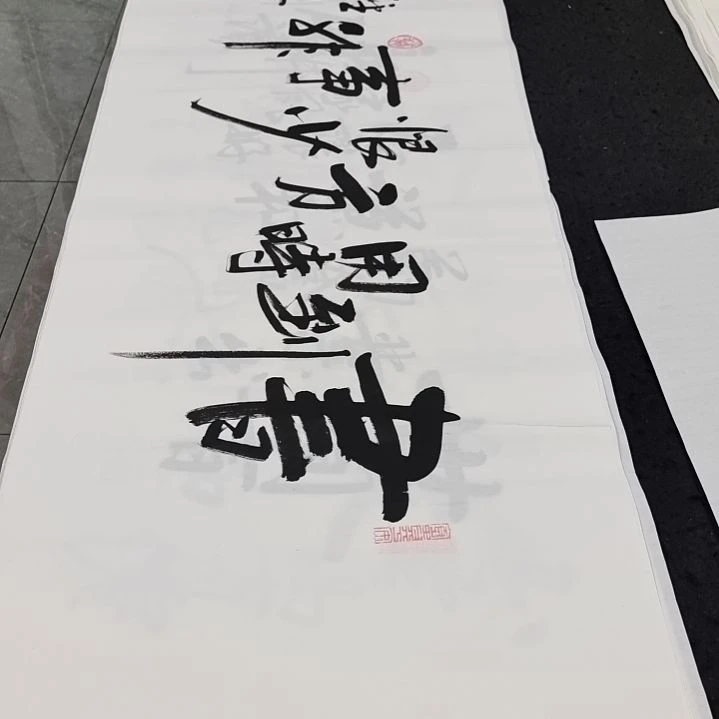 書
到
用時
方
恨少
事非